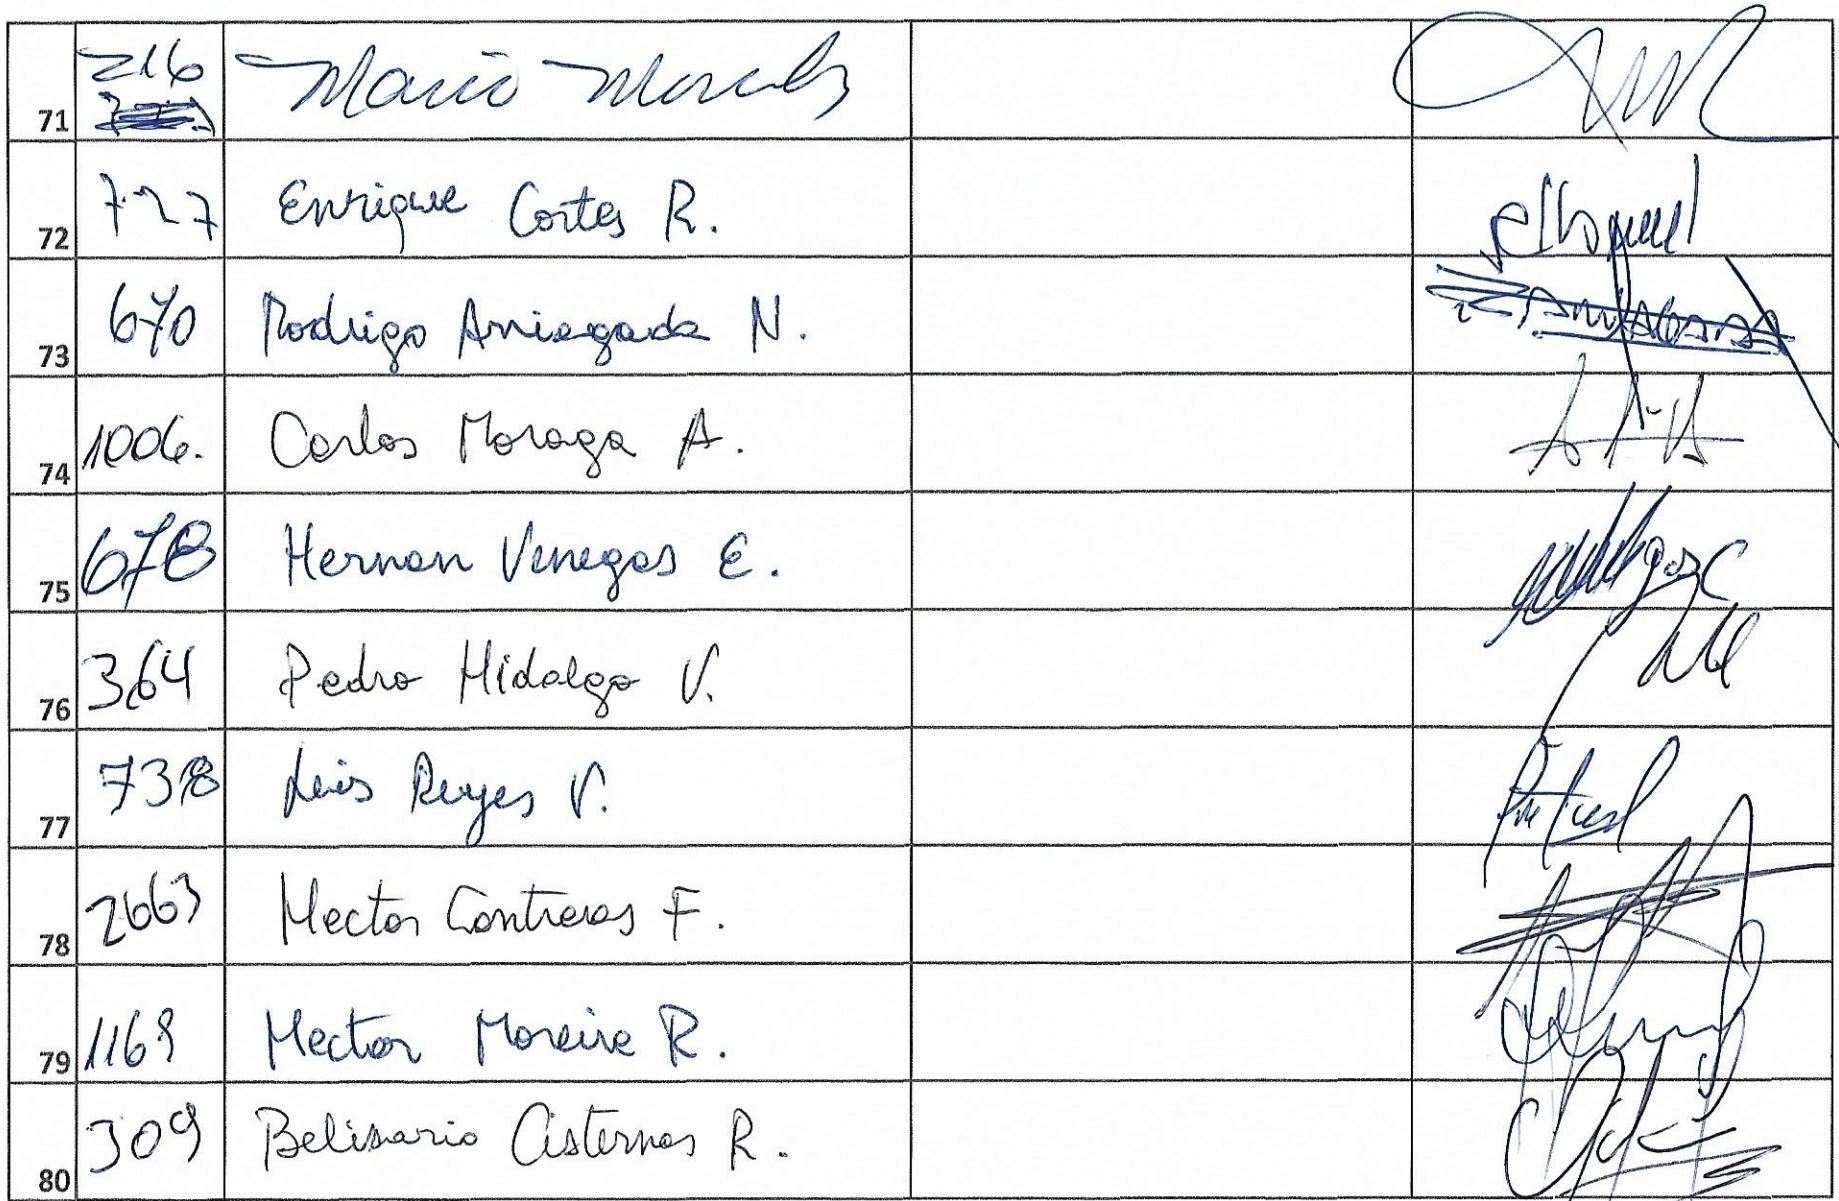 71 216 Mario Morales
72 727 Enrique Cortes R.
73 670 Rodrigo Arriagada N.
74 1006. Carlos Moraga A.
75 678 Hernan Venegas E.
76 364 Pedro Hidalgo V.
77 738 Luis Reyes V.
78 2663 Hector Contreras F.
79 1169 Hector Moreira R.
80 309 Belisario Cisternas R.